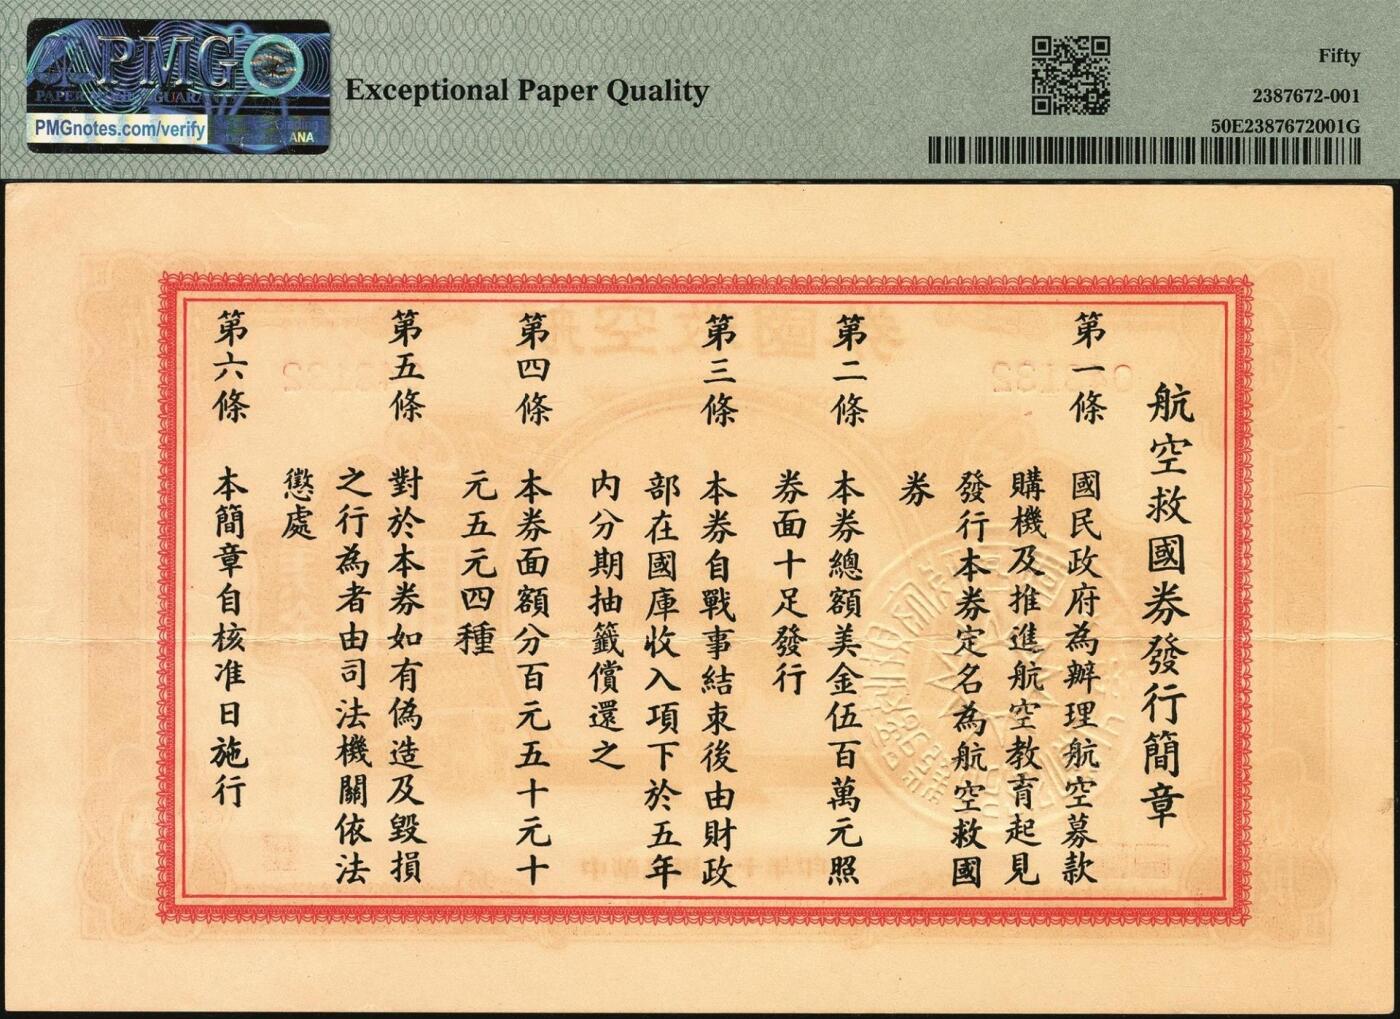 PMG
PMGnotes.com/verify
ANA
Exceptional Paper Quality
Fifty
2387672-001
50E2387672001G
航空救國券發行簡章
第一條 國民政府為辦理航空募款
購機及推進航空教育起見
發行本券定名為航空救國
券
第二條 本券總額美金伍百萬元照
券面十足發行
第三條 本券自戰事結束後由財政
部在國庫收入項下於五年
內分期抽籤償還之
第四條 本券面額分百元五十元十
元五元四種
第五條 對於本券如有偽造及毀損
之行為者由司法機關依法
懲處
第六條 本簡章自核准日施行